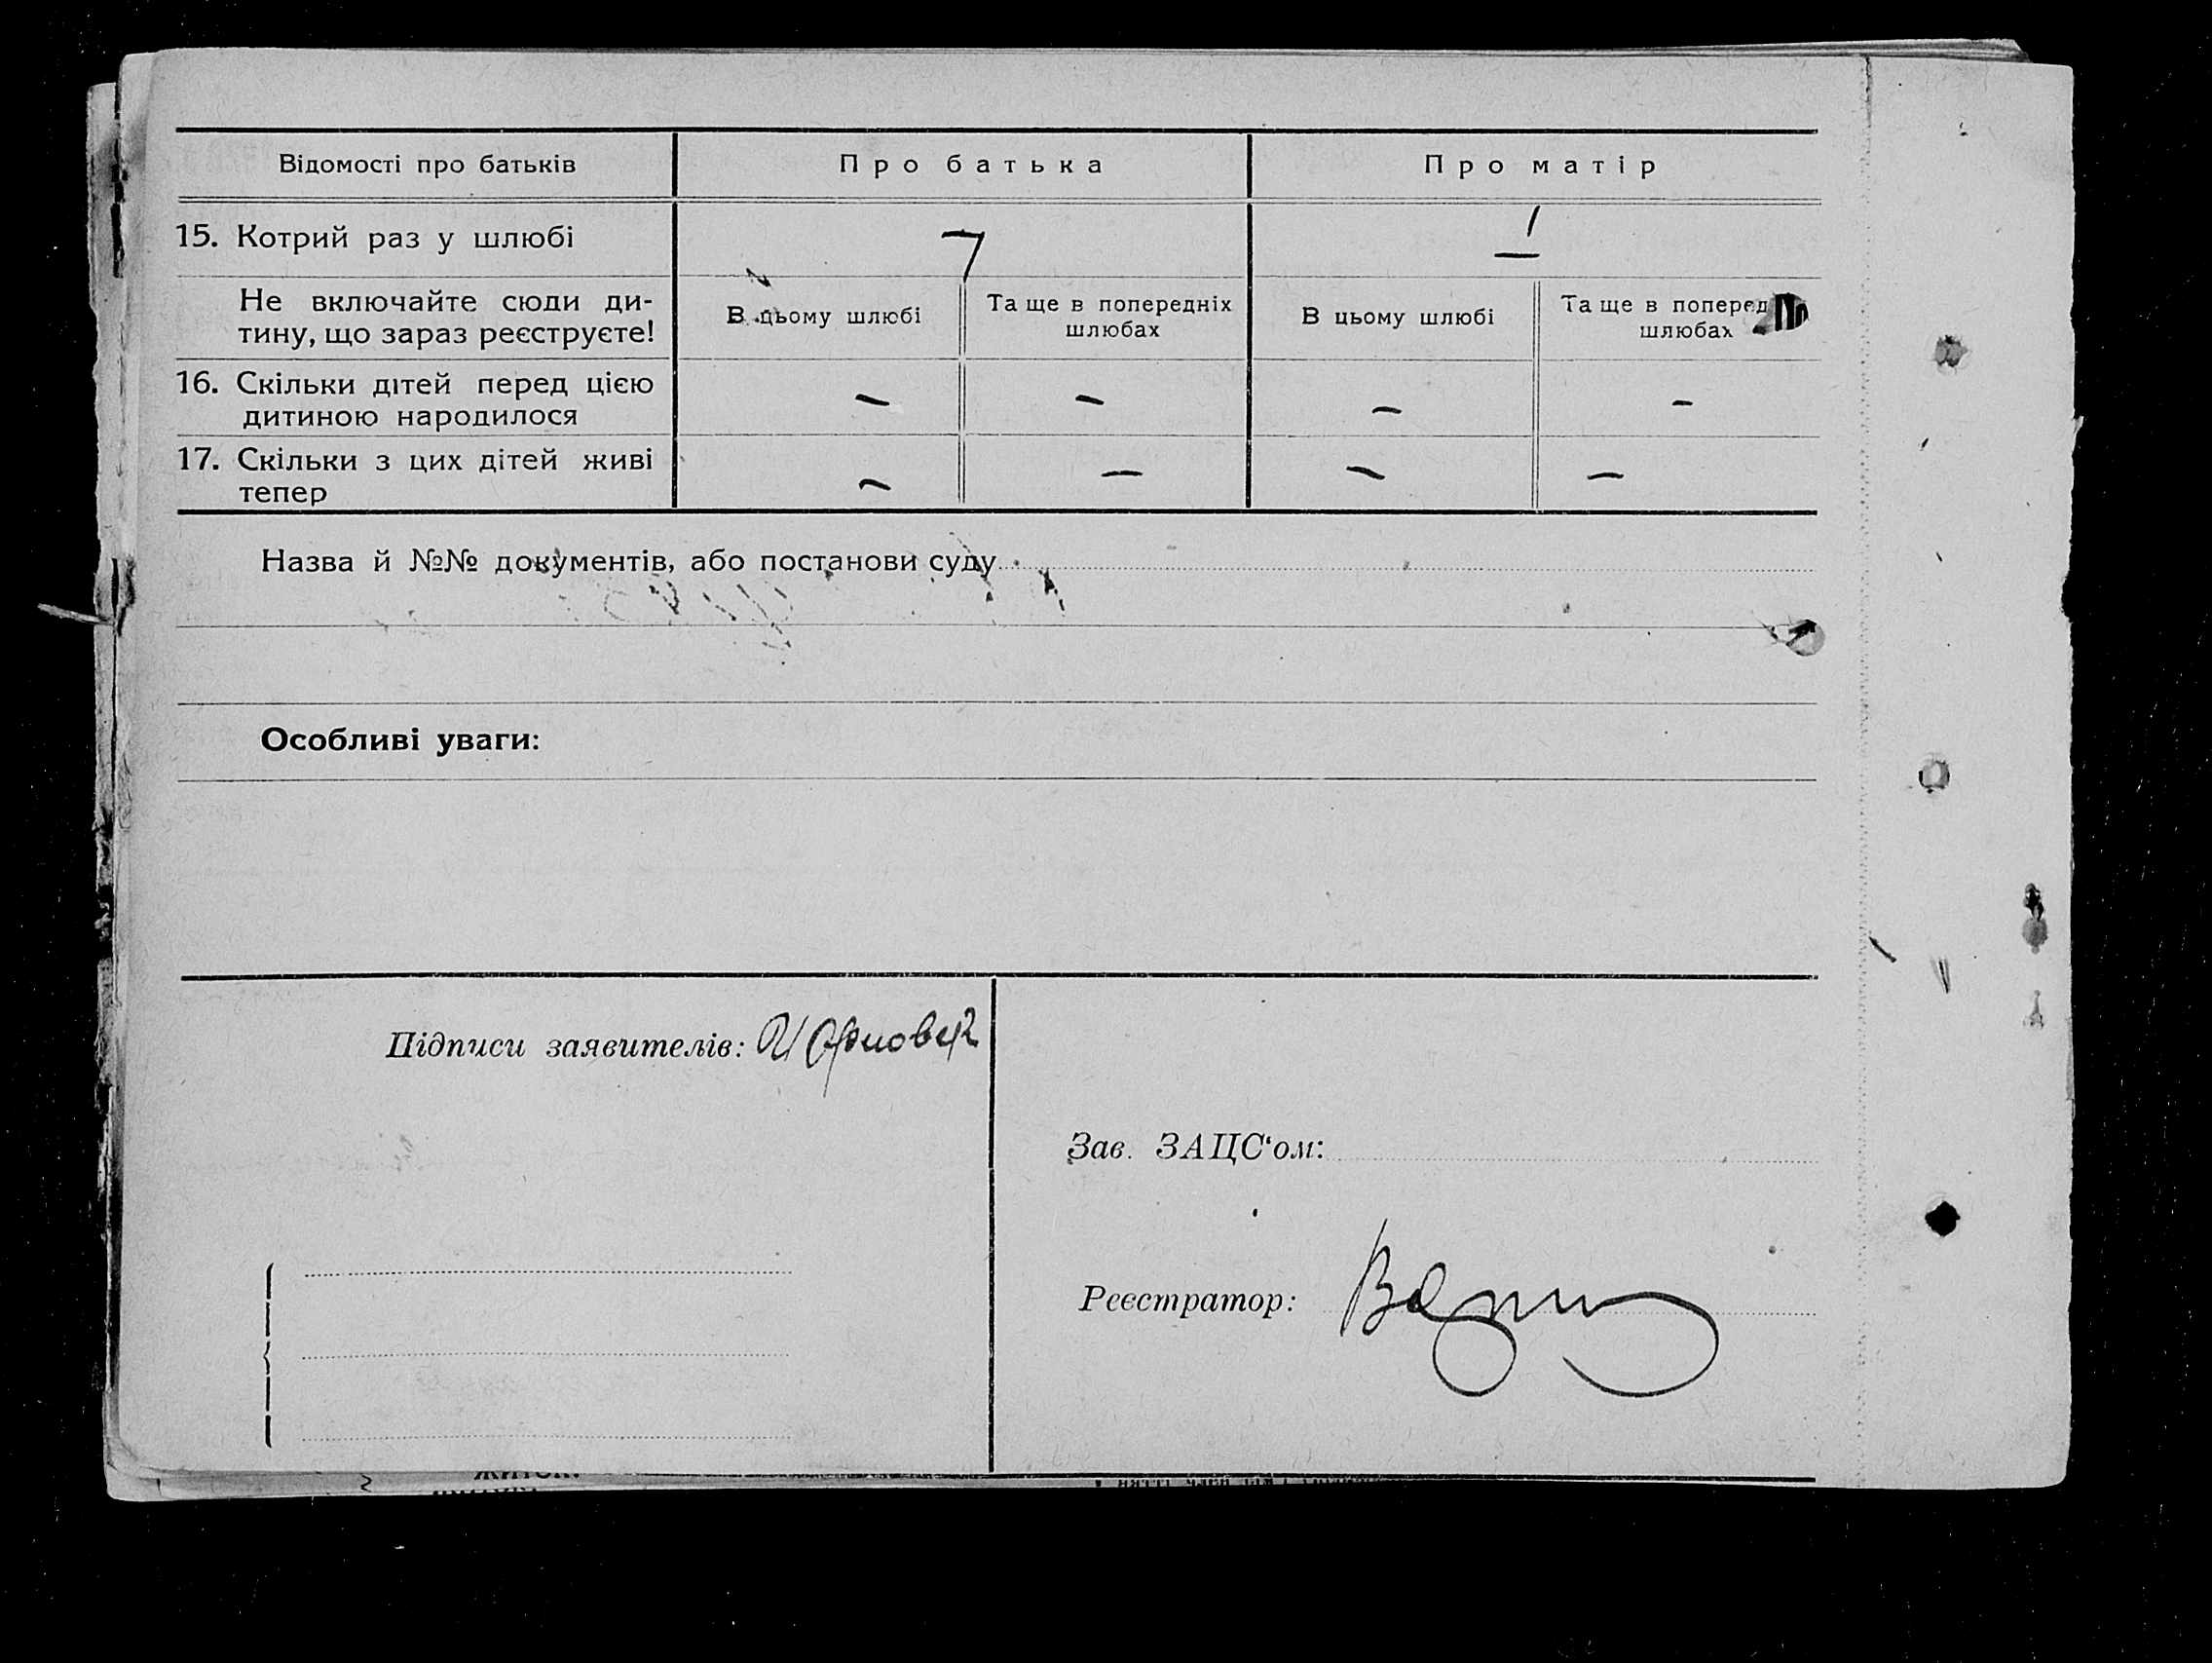 Відомості про батьків
Про батька
Про матір
15. Котрий раз у шлюбі
1
Не включайте сюди ди-
тину, що зараз реєструєте!
В цьому шлюбі
Та ще в попередніх
шлюбах
В цьому шлюбі
Та ще в поперед
шлюбах
16. Скільки дітей перед цією
дитиною народилося
– – – –
17. Скільки з цих дітей живі
тепер
– – – –
Назва й №№ документів, або постанови суду
Особливі уваги:
Підписи заявителів:
Зав. ЗАЦС'ом:
Реєстратор: